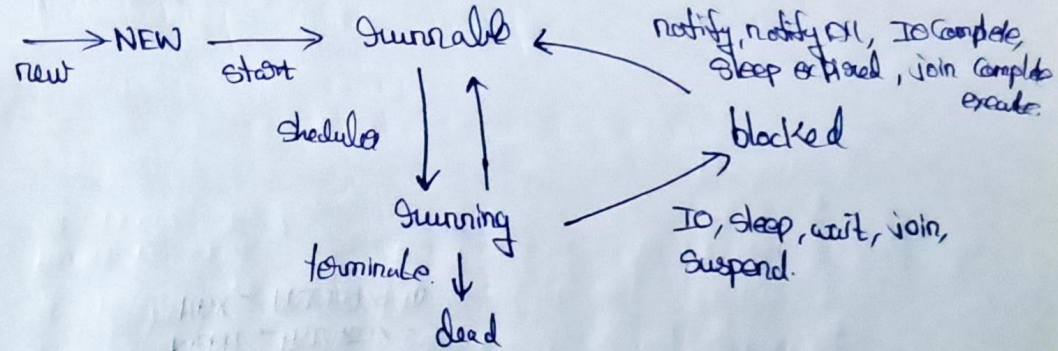 NEW
new
start
runnable
notify, notifyAll, IO Complete,
Sleep expired, join Complete
excute.
sheduler
blocked
running
IO, sleep, wait, join,
suspend.
terminate.
dead